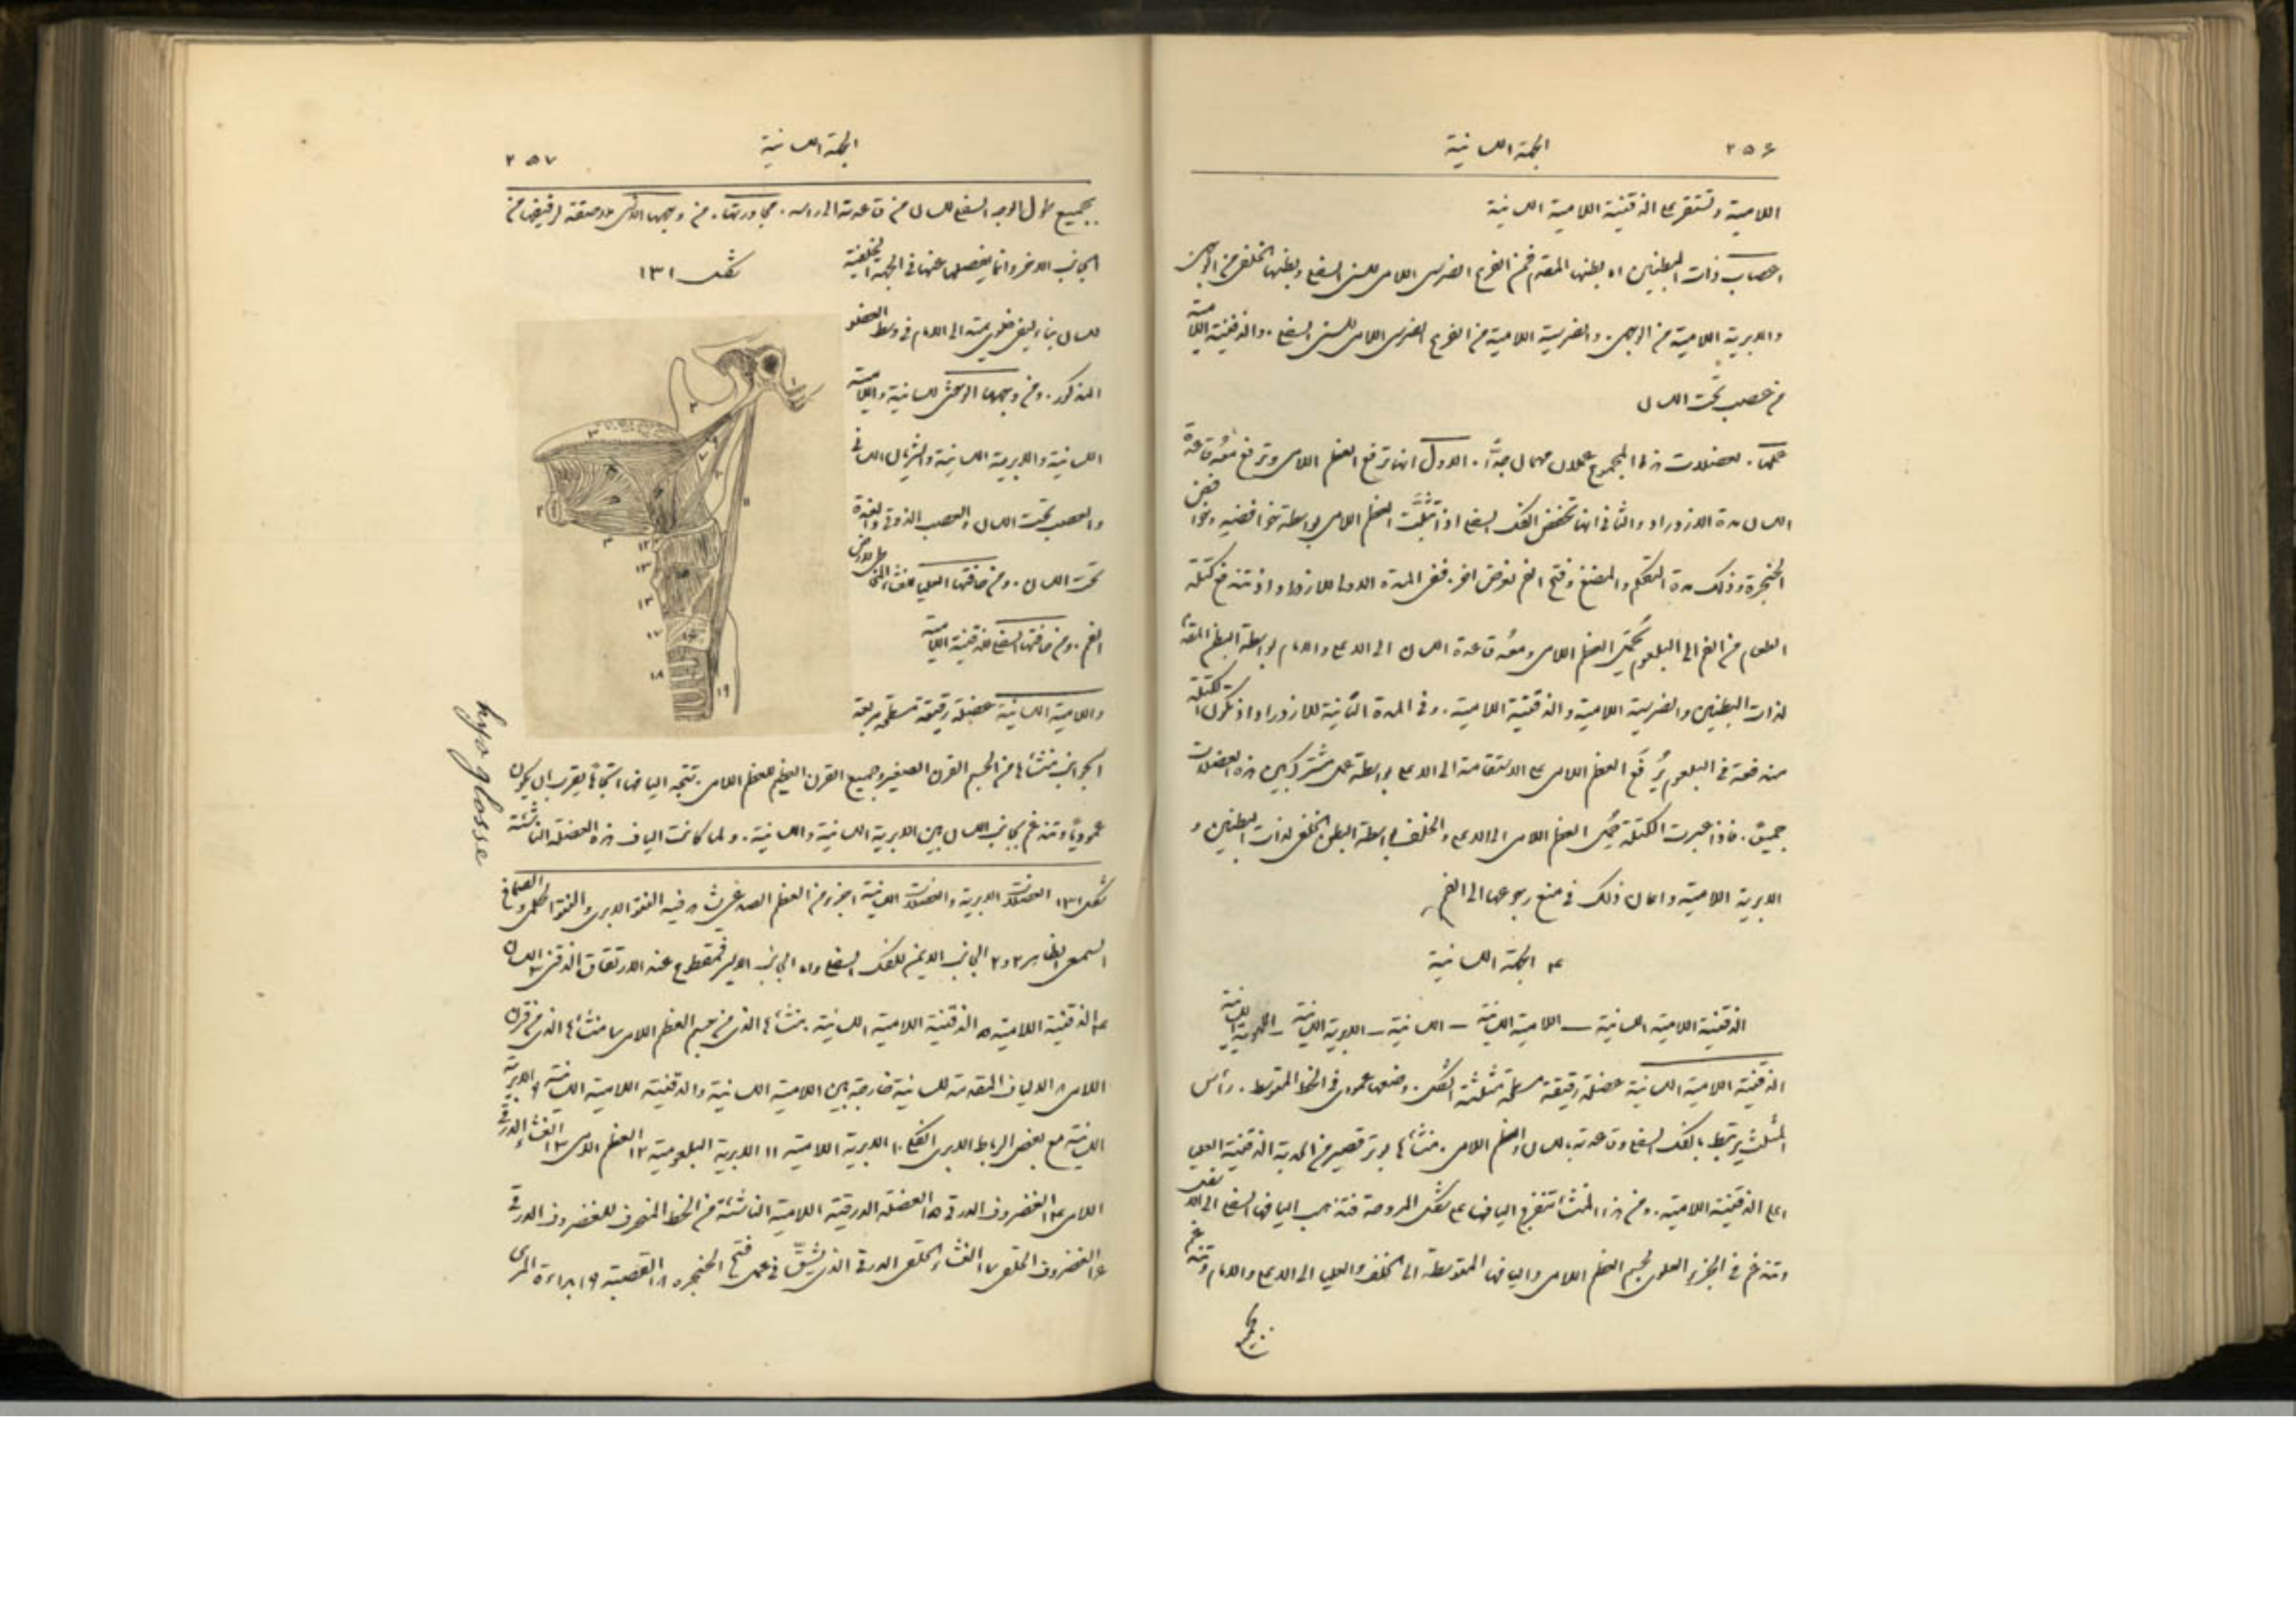 ٢٥٦ الجهة اللسانية
اللامية وتستقر على الذقنية اللامية اللسانية
اعصاب ذات البطنين اما بطنها المقدم فمن الفرع الضرسى اللامى للسنى السفلى وبطنها الخلفى من الوجهى
والابرية اللامية من الوجهى. والضرسية اللامية من الفرع الضرسى اللامى للسنى السفلى. والذقنية اللامية
من عصب تحت اللسان
عملها. لعضلات هذا المجموع عملان مهمان جدًّا. الاول انها ترفع العظم اللامى وترفع معه قاعدة
اللسان مدة الازدراد والثانى انها تخفض الفك السفلى اذا تثبَّت العظم اللامى بواسطة خوافضه وخوافض
الحنجرة وذلك مدة التكلم والمضغ وفتح الفم لغرض اخر. ففى المدة الاولى للازدراد اذ تندفع كتلة
الطعام من الفم الى البلعوم العظم اللامى ومعه قاعدة اللسان الى الاعلى والامام بواسطة البطن المقدم
لذات البطنين والضرسية اللامية والذقنية اللامية. وفى المدة الثانية للازدراد اذ تكون الكتلة
مندفعة فى البلعوم يُرفَع العظم اللامى على الاستقامة الى الاعلى بواسطة عمل مشترك بين هذه العضلات
جميعًا. فاذا عبرت الكتلة العظم اللامى الى الاعلى والخلف بواسطة البطن الخلفى لذات البطنين و
الابرية اللامية واعان ذلك فى منع رجوعها الى الفم
٣ الجهة اللسانية
الذقنية اللامية اللسانية – اللامية اللسانية – اللسانية – الابرية اللسانية –
الذقنية اللامية اللسانية عضلة رقيقة مسطحة مثلثة الشكل. وضعها عمودى فى الخط المتوسط. رأس
المثلث يرتبط بالفك السفلى وقاعدته باللسان والعظم اللامى. منشأها بوتر قصير من الحدبة الذقنية العليا
اعلى الذقنية اللامية. ومن هذا المنشأ تنفرج اليافها على شكل المروحة فتذهب اليافها السفلى الى الاسفل
وتندغم فى الجزء العلوى لجسم العظم اللامى واليافها المتوسطة الى الخلف والعليا الى الاعلى والامام وتندغم
بجميع
الجهة اللسانية ٢٥٧
بجميع طول الوجه السفلى للسان من قاعدته الى راسه. مجاورتها. من وجهها الانسى ملاصقة لرفيقتها من
الجانب الاخر وانما يفصلها عنها فى الجهة الخلفية
شكل ١٣١
للسان بناء ليفى خلوى يمتد الى الامام فى وسط العضو
المذكور. ومن وجهها الوحشى للسانية واللامية
اللسانية والابرية اللسانية والشريان اللسانى
والعصب تحت اللسان والعصب الذوقى والغدة
تحت اللسان. ومن حافتها العليا للغشاء المخاطى لارض
الفم. ومن حافتها السفلى للذقنية اللامية
واللامية اللسانية عضلة رقيقة مسطحة مربعة
الجوانب منشأها من الجسم القرن الصغير وجميع القرن العظيم للعظم اللامى. تتجه اليافها اتجاهًا يقرب ان يكون
عموديًا وتندغم بجانب اللسان بين الابرية اللسانية واللسانية. ولما كانت الياف هذه العضلة الناشئة
hyo glosse
شكل ١٣١ العضلات الابرية والعضلات اللسانية ١ جزء من العظم الصدغى فيه النتوء الابرى والنتوء الحلمى والصماخ
السمعى الظاهر ٢ و٢ الجانب الايمن للفك السفلى واما الجانب الايسر فمقطوع عند الارتفاق الذقنى ٣ اللسان
٤ الذقنية اللامية ٥ الذقنية اللامية اللسانية ٦ منشأها الذى من جسم العظم اللامى ٧ منشأها الذى من قرن
اللامى ٨ الالياف المقدمة للسانية خارجة بين اللامية اللسانية والذقنية اللامية اللسانية ٩ الابرية
اللسانية مع بعض الرباط الابرى الفكى ١٠ الابرية اللامية ١١ الابرية البلعومية ١٢ العظم اللامى ١٣ الغشاء الدرقى
اللامى ١٤ الغضروف الدرقى ١٥ العضلة الدرقية اللامية الناشئة من الخط المنحرف للغضروف الدرقى
١٦ الغضروف الحلقى ١٧ الغشاء الحلقى الدرقى الذى يُشَقّ فى عمل فتح الحنجرة ١٨ القصبة ١٩ ابتداء المرى